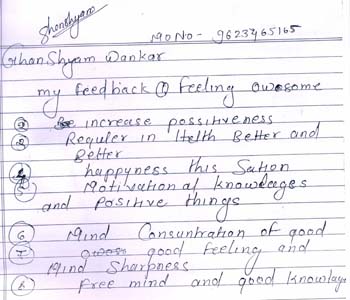 Ghanshyam
Mo No - 9623465165
Ghanshyam Wankar
my feedback ① Feeling awesome
② increase possitiveness
③ Reguler in Helth Better and
Better
④ happyness this Sation
⑤ Motivation of knowledges
and Positive things
⑥ Mind Consuntration of good
⑦ good feeling and
Mind Sharpness
⑧ free mind and good knowlage